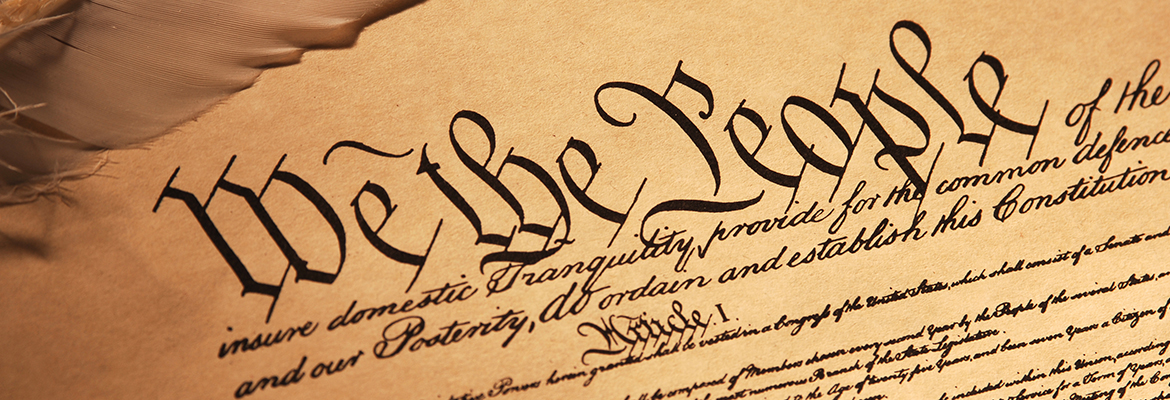 We the People of the
insure domestic Tranquility, provide for the common defence
and our Posterity, do ordain and establish this Constitution
Article. I.
granted shall be vested in a Congress of the United States, which shall consist of a Senate and
be composed of Members chosen every second Year by the People of the several States,
most numerous Branch of the State Legislature.
the Age of twenty five Years, and been seven Years a Citizen of
included within this Union, according
Service for a Term of Years,
Meeting of the